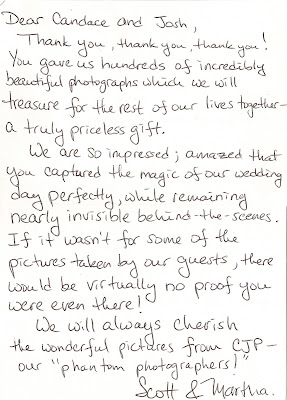 Dear Candace and Josh,
Thank you, thank you, thank you!
You gave us hundreds of incredibly
beautiful photographs which we will
treasure for the rest of our lives together-
a truly priceless gift.
We are so impressed; amazed that
you captured the magic of our wedding
day perfectly, while remaining
nearly invisible behind-the-scenes.
If it wasn't for some of the
pictures taken by our guests, there
would be virtually no proof you
were even there!
We will always cherish
the wonderful pictures from CJP-
our "phantom photographers!"
Scott & Martha.